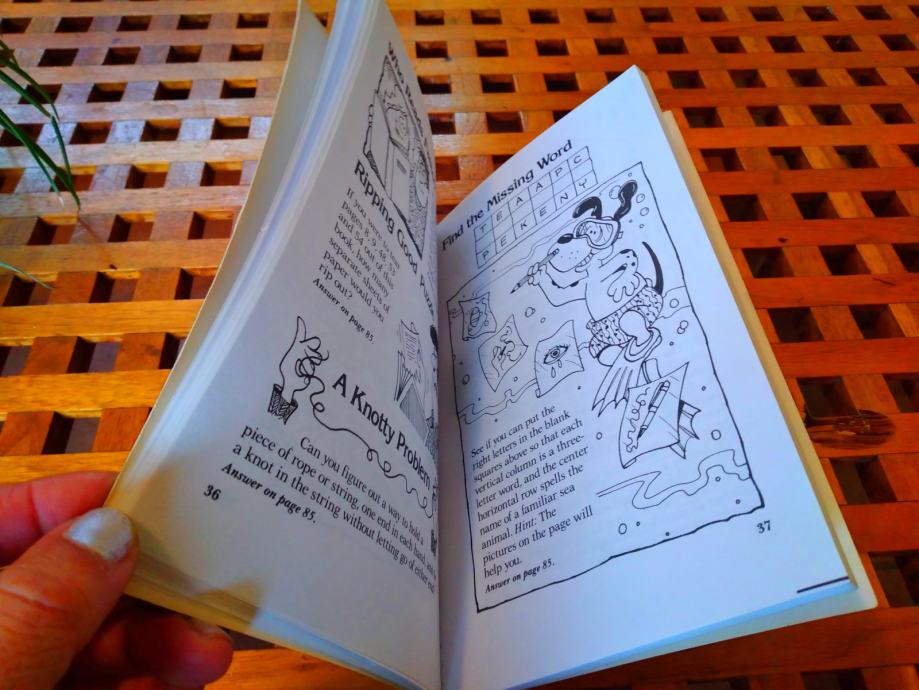 Ripping Good
If you were to tear
pages 8, 9, 48, 53
and 54 out of this
book, how many
separate sheets of
paper would you
rip out?
Answer on page 85.
A Knotty Problem
Can you figure out a way to hold a
piece of rope or string, one end in each hand, and
a knot in the string without letting go of either end
Answer on page 85.
36
Find the Missing Word
T E A A P C
P E K E N Y
See if you can put the
right letters in the blank
squares above so that each
vertical column is a three-
letter word, and the center
horizontal row spells the
name of a familiar sea
animal. Hint: The
pictures on the page will
help you.
Answer on page 85.
37